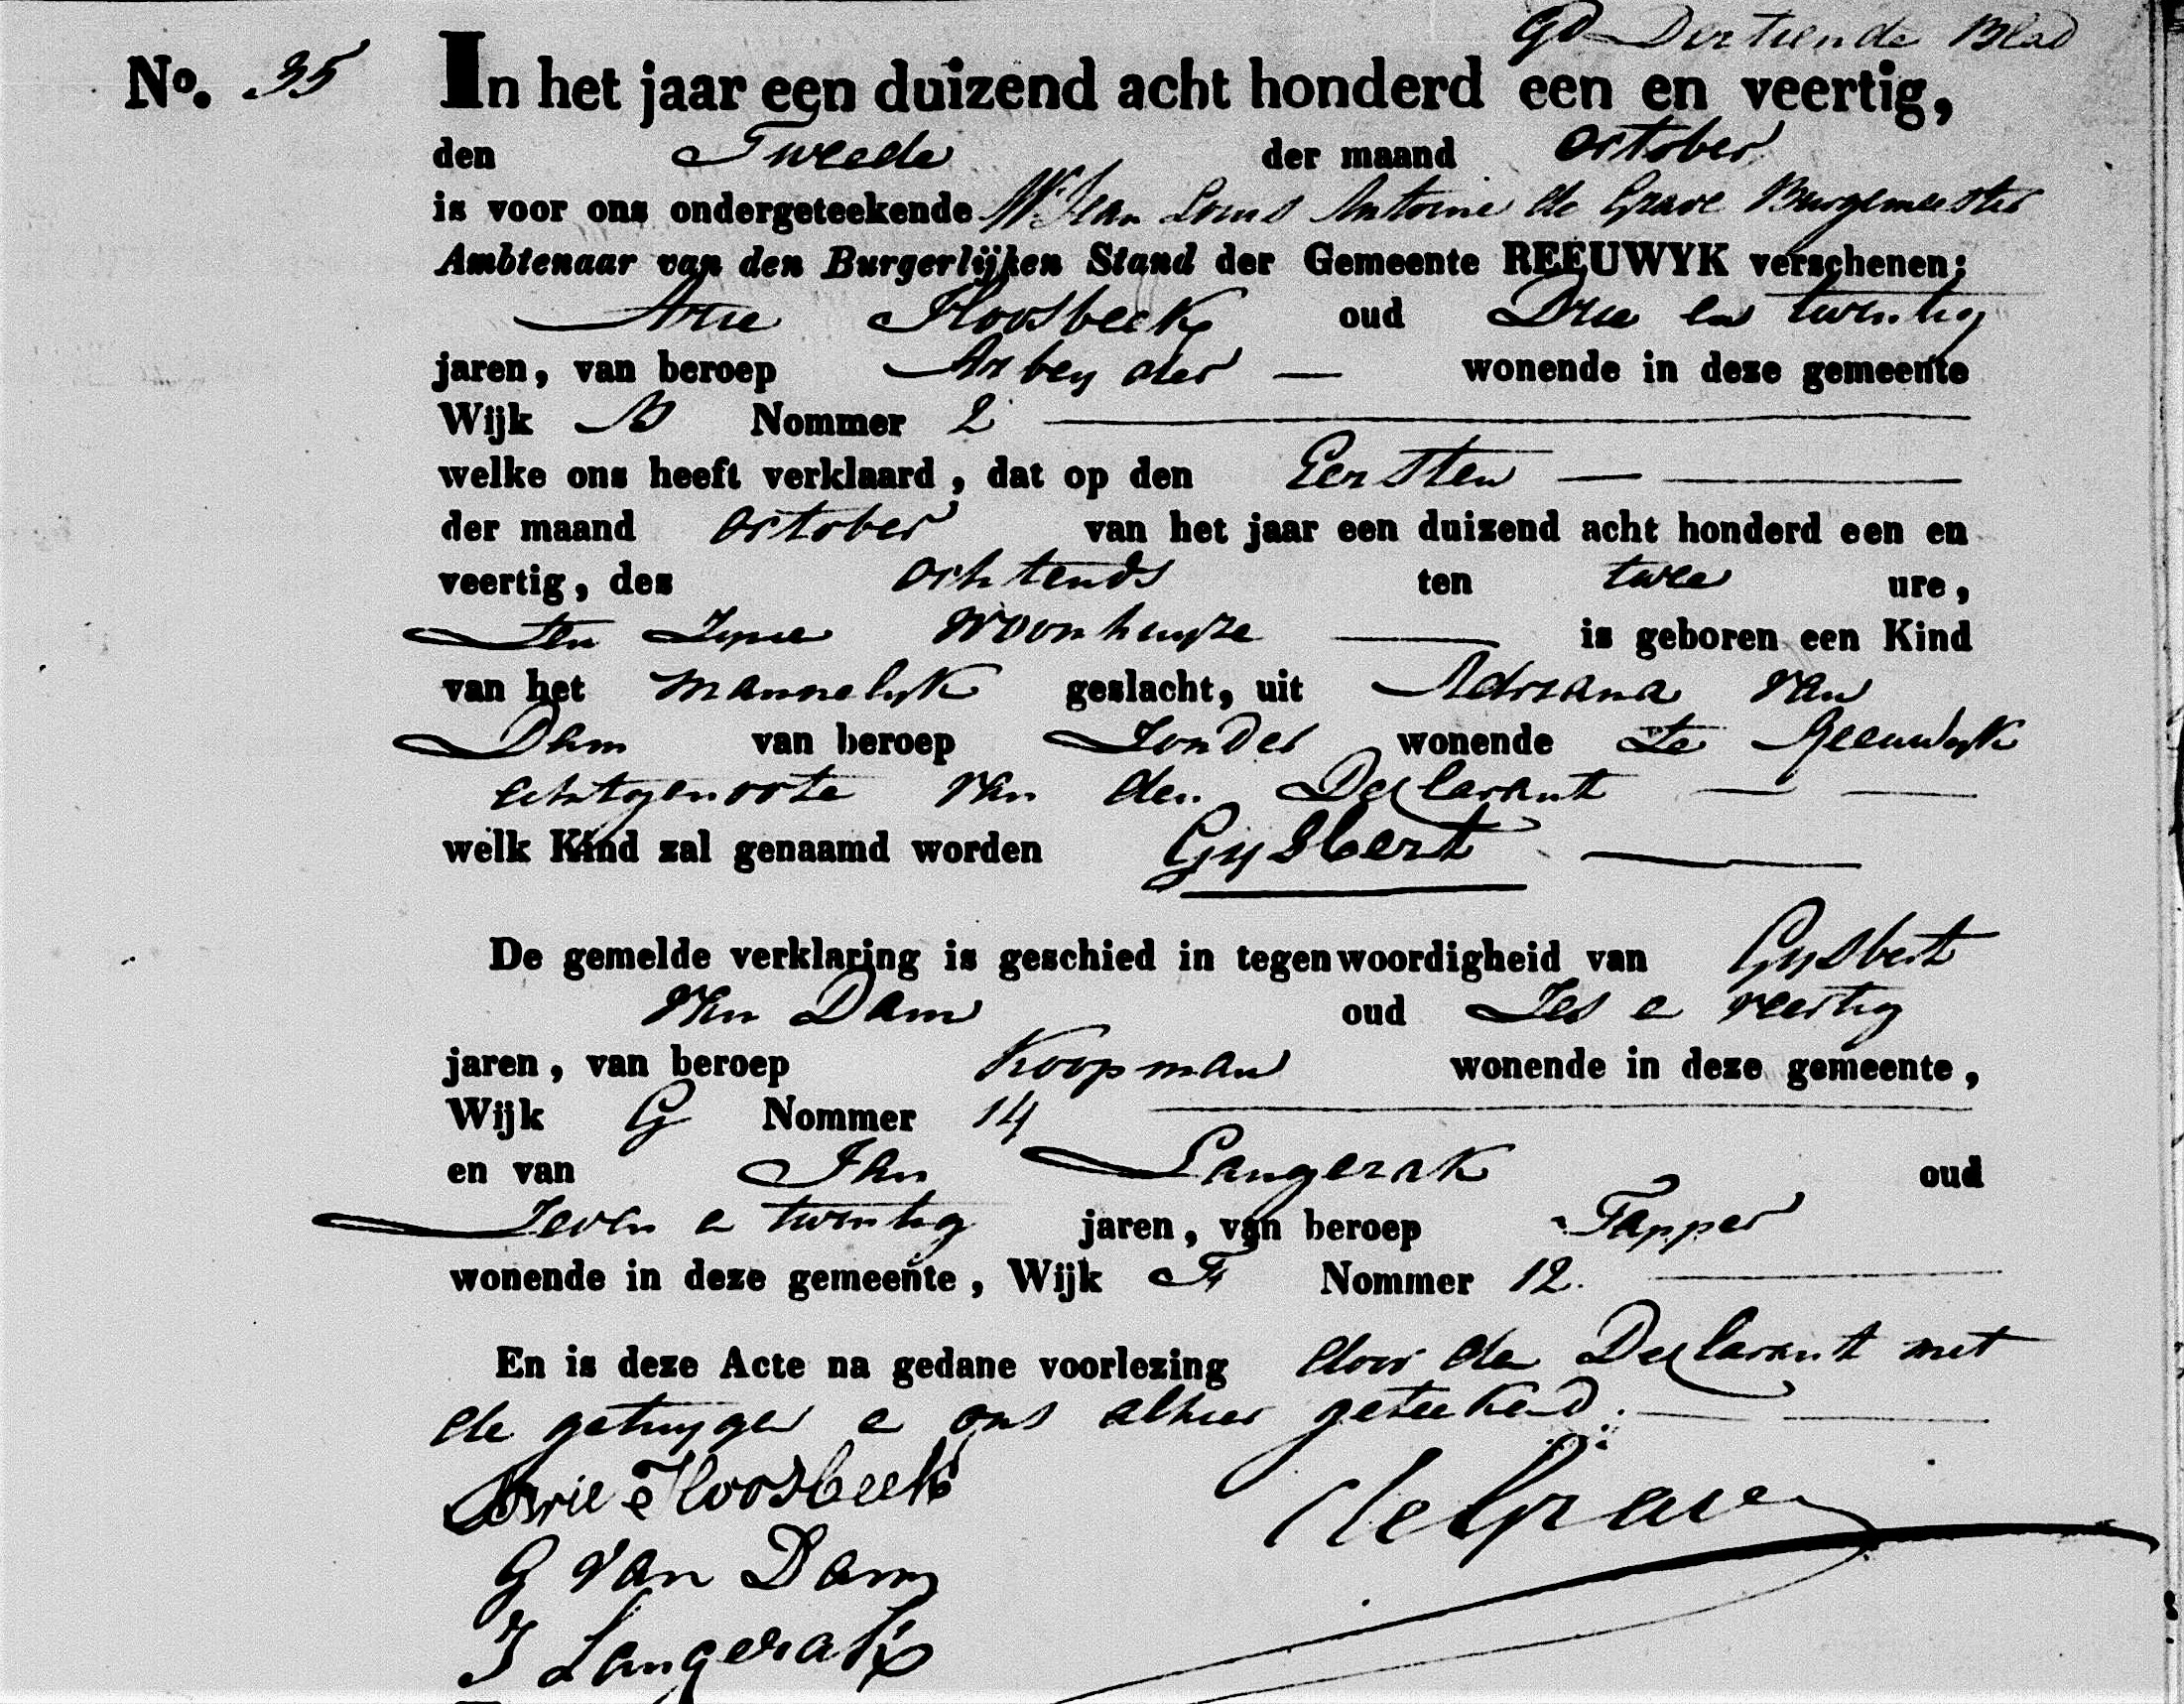 Dertiende Blad
No. 35 In het jaar een duizend acht honderd een en veertig,
den Tweede der maand October
is voor ons ondergeteekende Mr Jean Louis Antoine de Grave Burgemeester
Ambtenaar van den Burgerlijken Stand der Gemeente REEUWYK verschenen;
Arie Hoosbeek oud Drie en twintig
jaren, van beroep Arbeyder — wonende in deze gemeente
Wijk B Nommer 2
welke ons heeft verklaard, dat op den Eersten —
der maand October van het jaar een duizend acht honderd een en
veertig, des ochtends ten twee ure,
Ten Zyne Woonhuyze is geboren een Kind
van het mannelyk geslacht, uit Adriana van
Dam van beroep Zonder wonende te Reeuwyk
echtgenoote van den Declarant
welk Kind zal genaamd worden Gysbert
De gemelde verklaring is geschied in tegenwoordigheid van Gysbert
Van Dam oud Zes e veertig
jaren, van beroep Koopman wonende in deze gemeente,
Wijk G Nommer 14
en van Jan Langerak oud
Zeven e twintig jaren, van beroep Tapper
wonende in deze gemeente, Wijk F Nommer 12.
En is deze Acte na gedane voorlezing door de Declarant met
de getuygen e ons alhier geteekend.
Arie Hoosbeek
de Grave
G van Dam
J Langerak